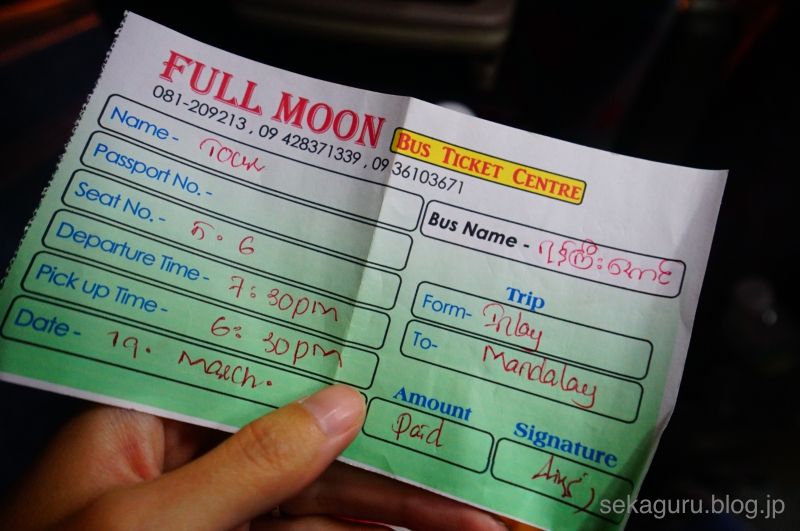 FULL MOON
BUS TICKET CENTRE
081-209213 , 09 428371339 , 09 36103671
Name - Tour
Passport No. -
Seat No. - 5 . 6
Departure Time - 7: 30pm
Pick up Time - 6: 30pm
Date - 19. March.
Bus Name -
Trip
Form- Inlay
To- Mandalay
Amount
Paid
Signature
sekaguru.blog.jp